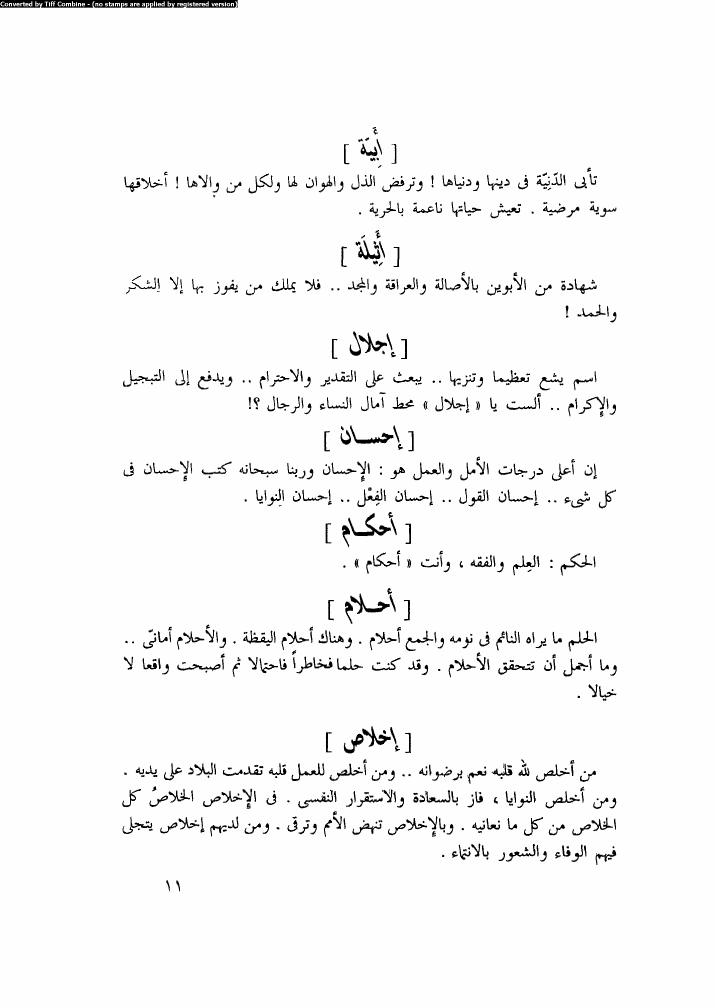 Converted by Tiff Combine - (no stamps are applied by registered version)
[ أَبِيَّة ]
تأبى الدّنِيّة فى دينها ودنياها ! وترفض الذل والهوان لها ولكل من والاها ! أخلاقها
سوية مرضية . تعيش حياتها ناعمة بالحرية .
[ أَثِيلَة ]
شهادة من الأبوين بالأصالة والعراقة والمجد .. فلا يملك من يفوز بها إلا الشكر
والحمد !
[ إجلال ]
اسم يشع تعظيما وتنزيها .. يبعث على التقدير والاحترام .. ويدفع إلى التبجيل
والإكرام .. ألست يا « إجلال » محط آمال النساء والرجال ؟!
[ إحســان ]
إن أعلى درجات الأمل والعمل هو : الإحسان وربنا سبحانه كتب الإحسان فى
كل شىء .. إحسان القول .. إحسان الفِعْل .. إحسان النوايا .
[ أحكــام ]
الحكم : العِلم والفقه ، وأنت « أحكام » .
[ أحــلام ]
الحلم ما يراه النائم فى نومه والجمع أحلام . وهناك أحلام اليقظة . والأحلام أمانىّ ..
وما أجمل أن تتحقق الأحلام . وقد كنت حلما فخاطراً فاحتمالا ثم أصبحت واقعا لا
خيالا .
[ إخلاص ]
من أخلص لله قلبه نعم برضوانه .. ومن أخلص للعمل قلبه تقدمت البلاد على يديه .
ومن أخلص النوايا ، فاز بالسعادة والاستقرار النفسى . فى الإخلاص الخلاصُ كل
الخلاص من كل ما نعانيه . وبالإخلاص تنهض الأمم وترقى . ومن لديهم إخلاص يتجلى
فيهم الوفاء والشعور بالانتماء .
١١